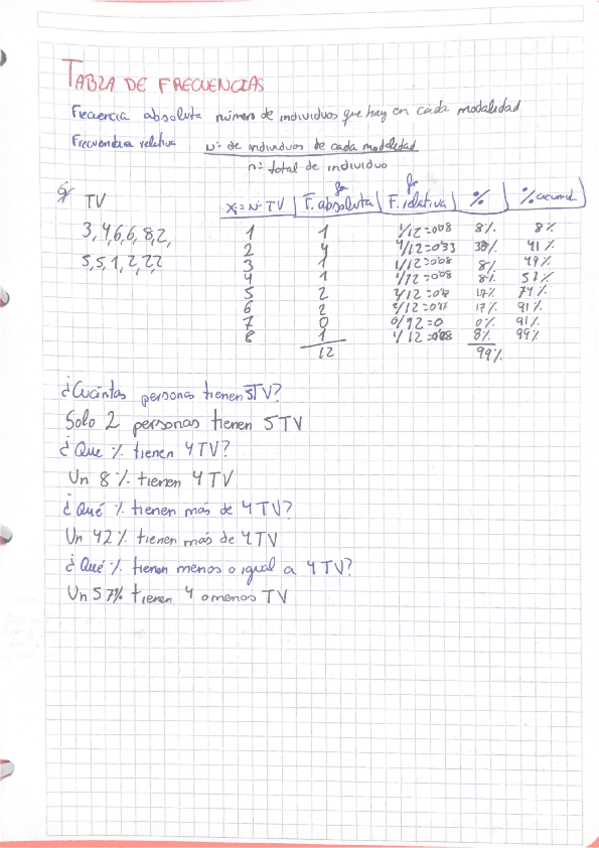 TABLA DE FRECUENCIAS
Frecuencia absoluta número de individuos que hay en cada modalidad
Frecuencia relativa Nº de individuos de cada modalidad
nº total de individuo
Ej TV
3,4,6,6,8,2,
5,5,1,2,2,2
Xi = Nº TV F. absoluta F. relativa % % acumul.
1 1 1/12=0'08 8% 8%
2 4 4/12=0'33 33% 41%
3 1 1/12=0'08 8% 49%
4 1 1/12=0'08 8% 57%
5 2 2/12=0'17 17% 74%
6 2 2/12=0'17 17% 91%
7 0 0/12=0 0% 91%
8 1 1/12=0'08 8% 99%
12 99%
¿Cuántas personas tienen 5TV?
Solo 2 personas tienen 5 TV
¿Que % tienen 4 TV?
Un 8% tienen 4 TV
¿Qué % tienen más de 4 TV?
Un 42% tienen más de 4 TV
¿Qué % tienen menos o igual a 4 TV?
Un 57% tienen 4 o menos TV